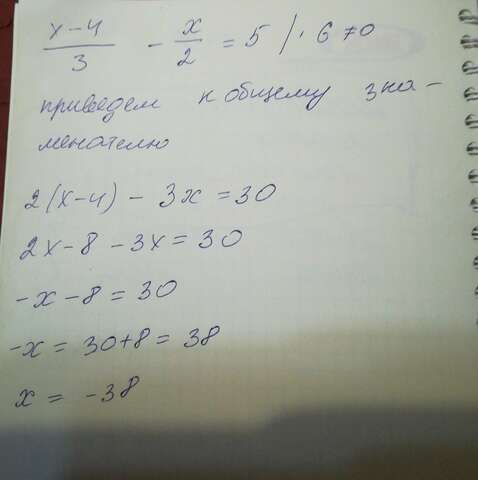 x-4/3 - x/2 = 5 / · 6 ≠ 0
приведем к общему зна-
менателю
2(x-4) - 3x = 30
2x-8-3x = 30
-x-8 = 30
-x = 30+8 = 38
x = -38